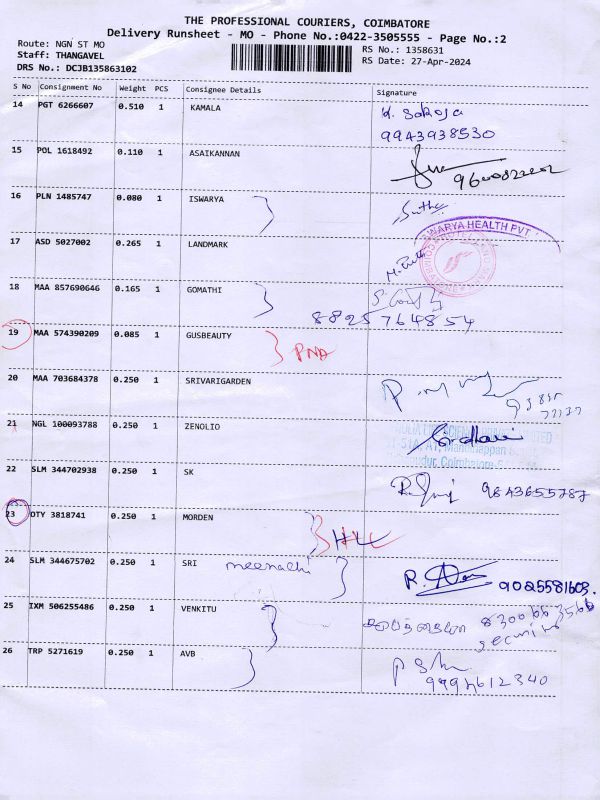 THE PROFESSIONAL COURIERS, COIMBATORE
Delivery Runsheet - MO - Phone No.:0422-3505555 - Page No.:2
Route: NGN ST MO
RS No.: 1358631
Staff: THANGAVEL
RS Date: 27-Apr-2024
DRS No.: DCJB135863102
S No Consignment No Weight PCS Consignee Details Signature
14 PGT 6266607 0.510 1 KAMALA K. Saroja
9943938530
15 POL 1618492 0.110 1 ASAIKANNAN
16 PLN 1485747 0.080 1 ISWARYA
WARYA HEALTH PVT
17 ASD 5027002 0.265 1 LANDMARK
18 MAA 857690646 0.165 1 GOMATHI
8825764854
19 MAA 574390209 0.085 1 GUSBEAUTY PNA
20 MAA 703684378 0.250 1 SRIVARIGARDEN
21 NGL 100093788 0.250 1 ZENOLIO
22 SLM 344702938 0.250 1 SK 9843655787
23 OTY 3818741 0.250 1 MORDEN
24 SLM 344675702 0.250 1 SRI meenachi 9025581603.
25 IXM 506255486 0.250 1 VENKITU
26 TRP 5271619 0.250 1 AVB
9994612340